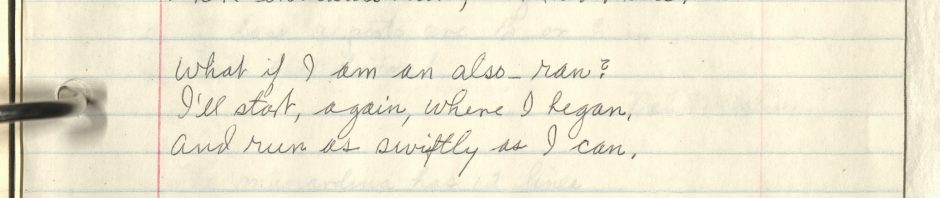 What if I am an also-ran?
I'll start, again, where I began,
And run as swiftly as I can.